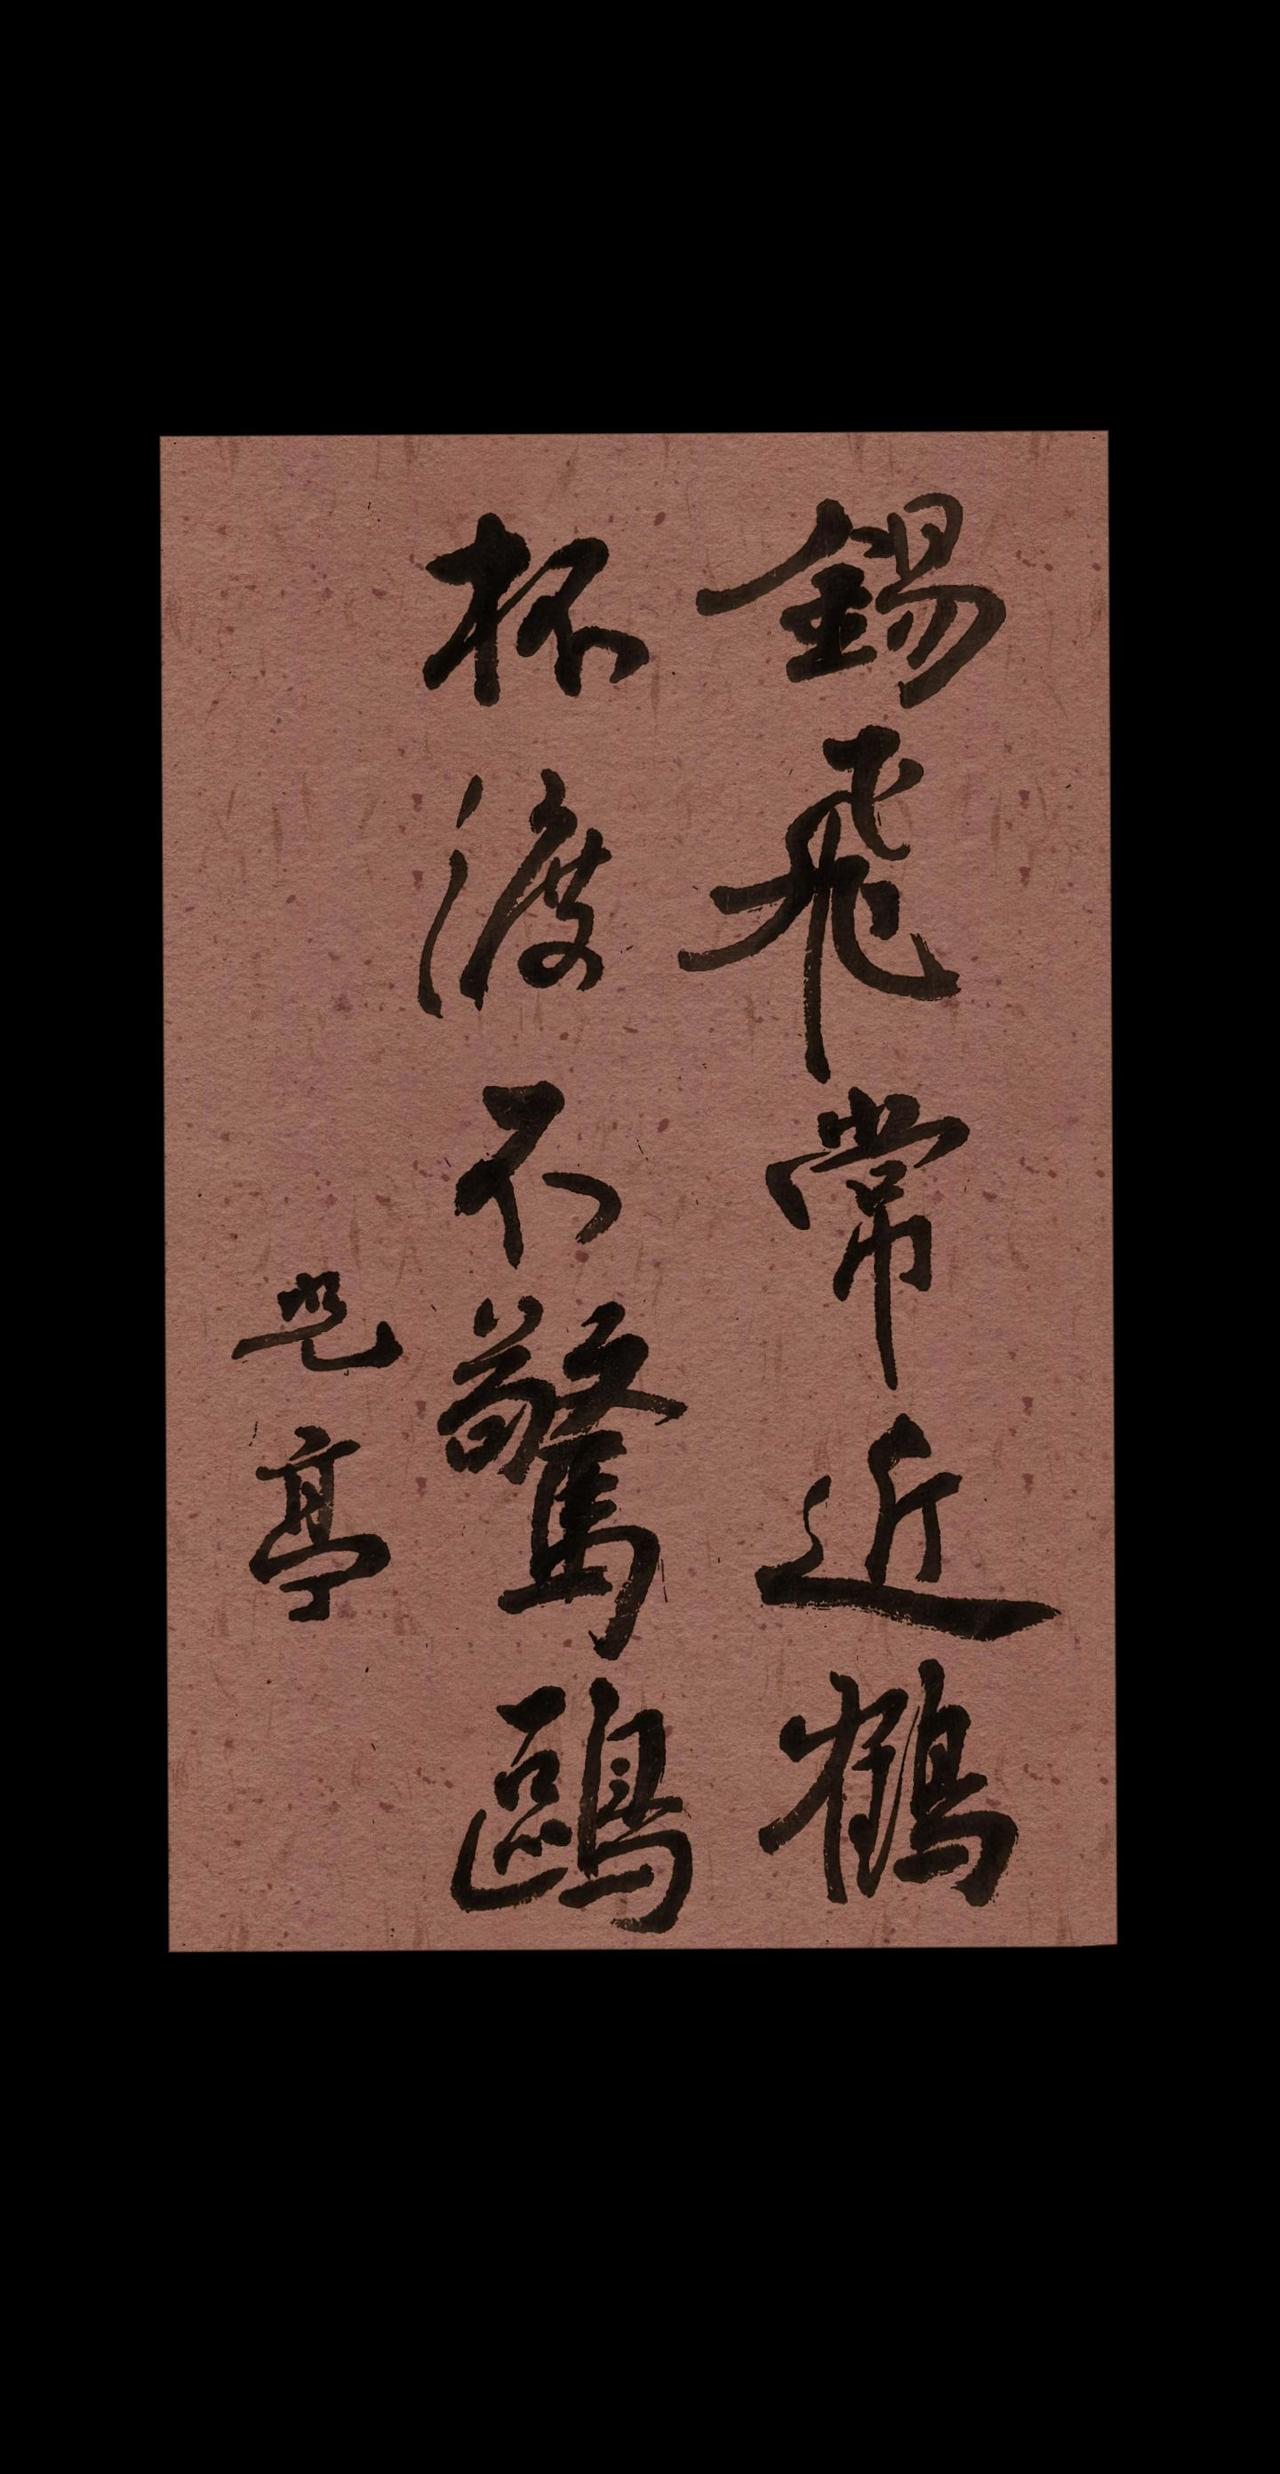 錫飛常近鶴
杯渡不驚鷗
亭